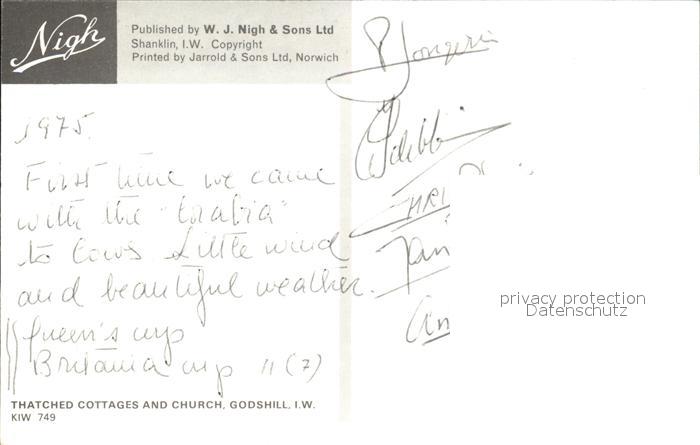 Nigh
Published by W. J. Nigh & Sons Ltd
Shanklin, I.W. Copyright
Printed by Jarrold & Sons Ltd, Norwich
1975.
First time we came
with the
to Cows Little wind
and beautiful weather.
Queen's cup
Britania cup 11 (7)
THATCHED COTTAGES AND CHURCH, GODSHILL, I.W.
KIW 749
privacy protection
Datenschutz